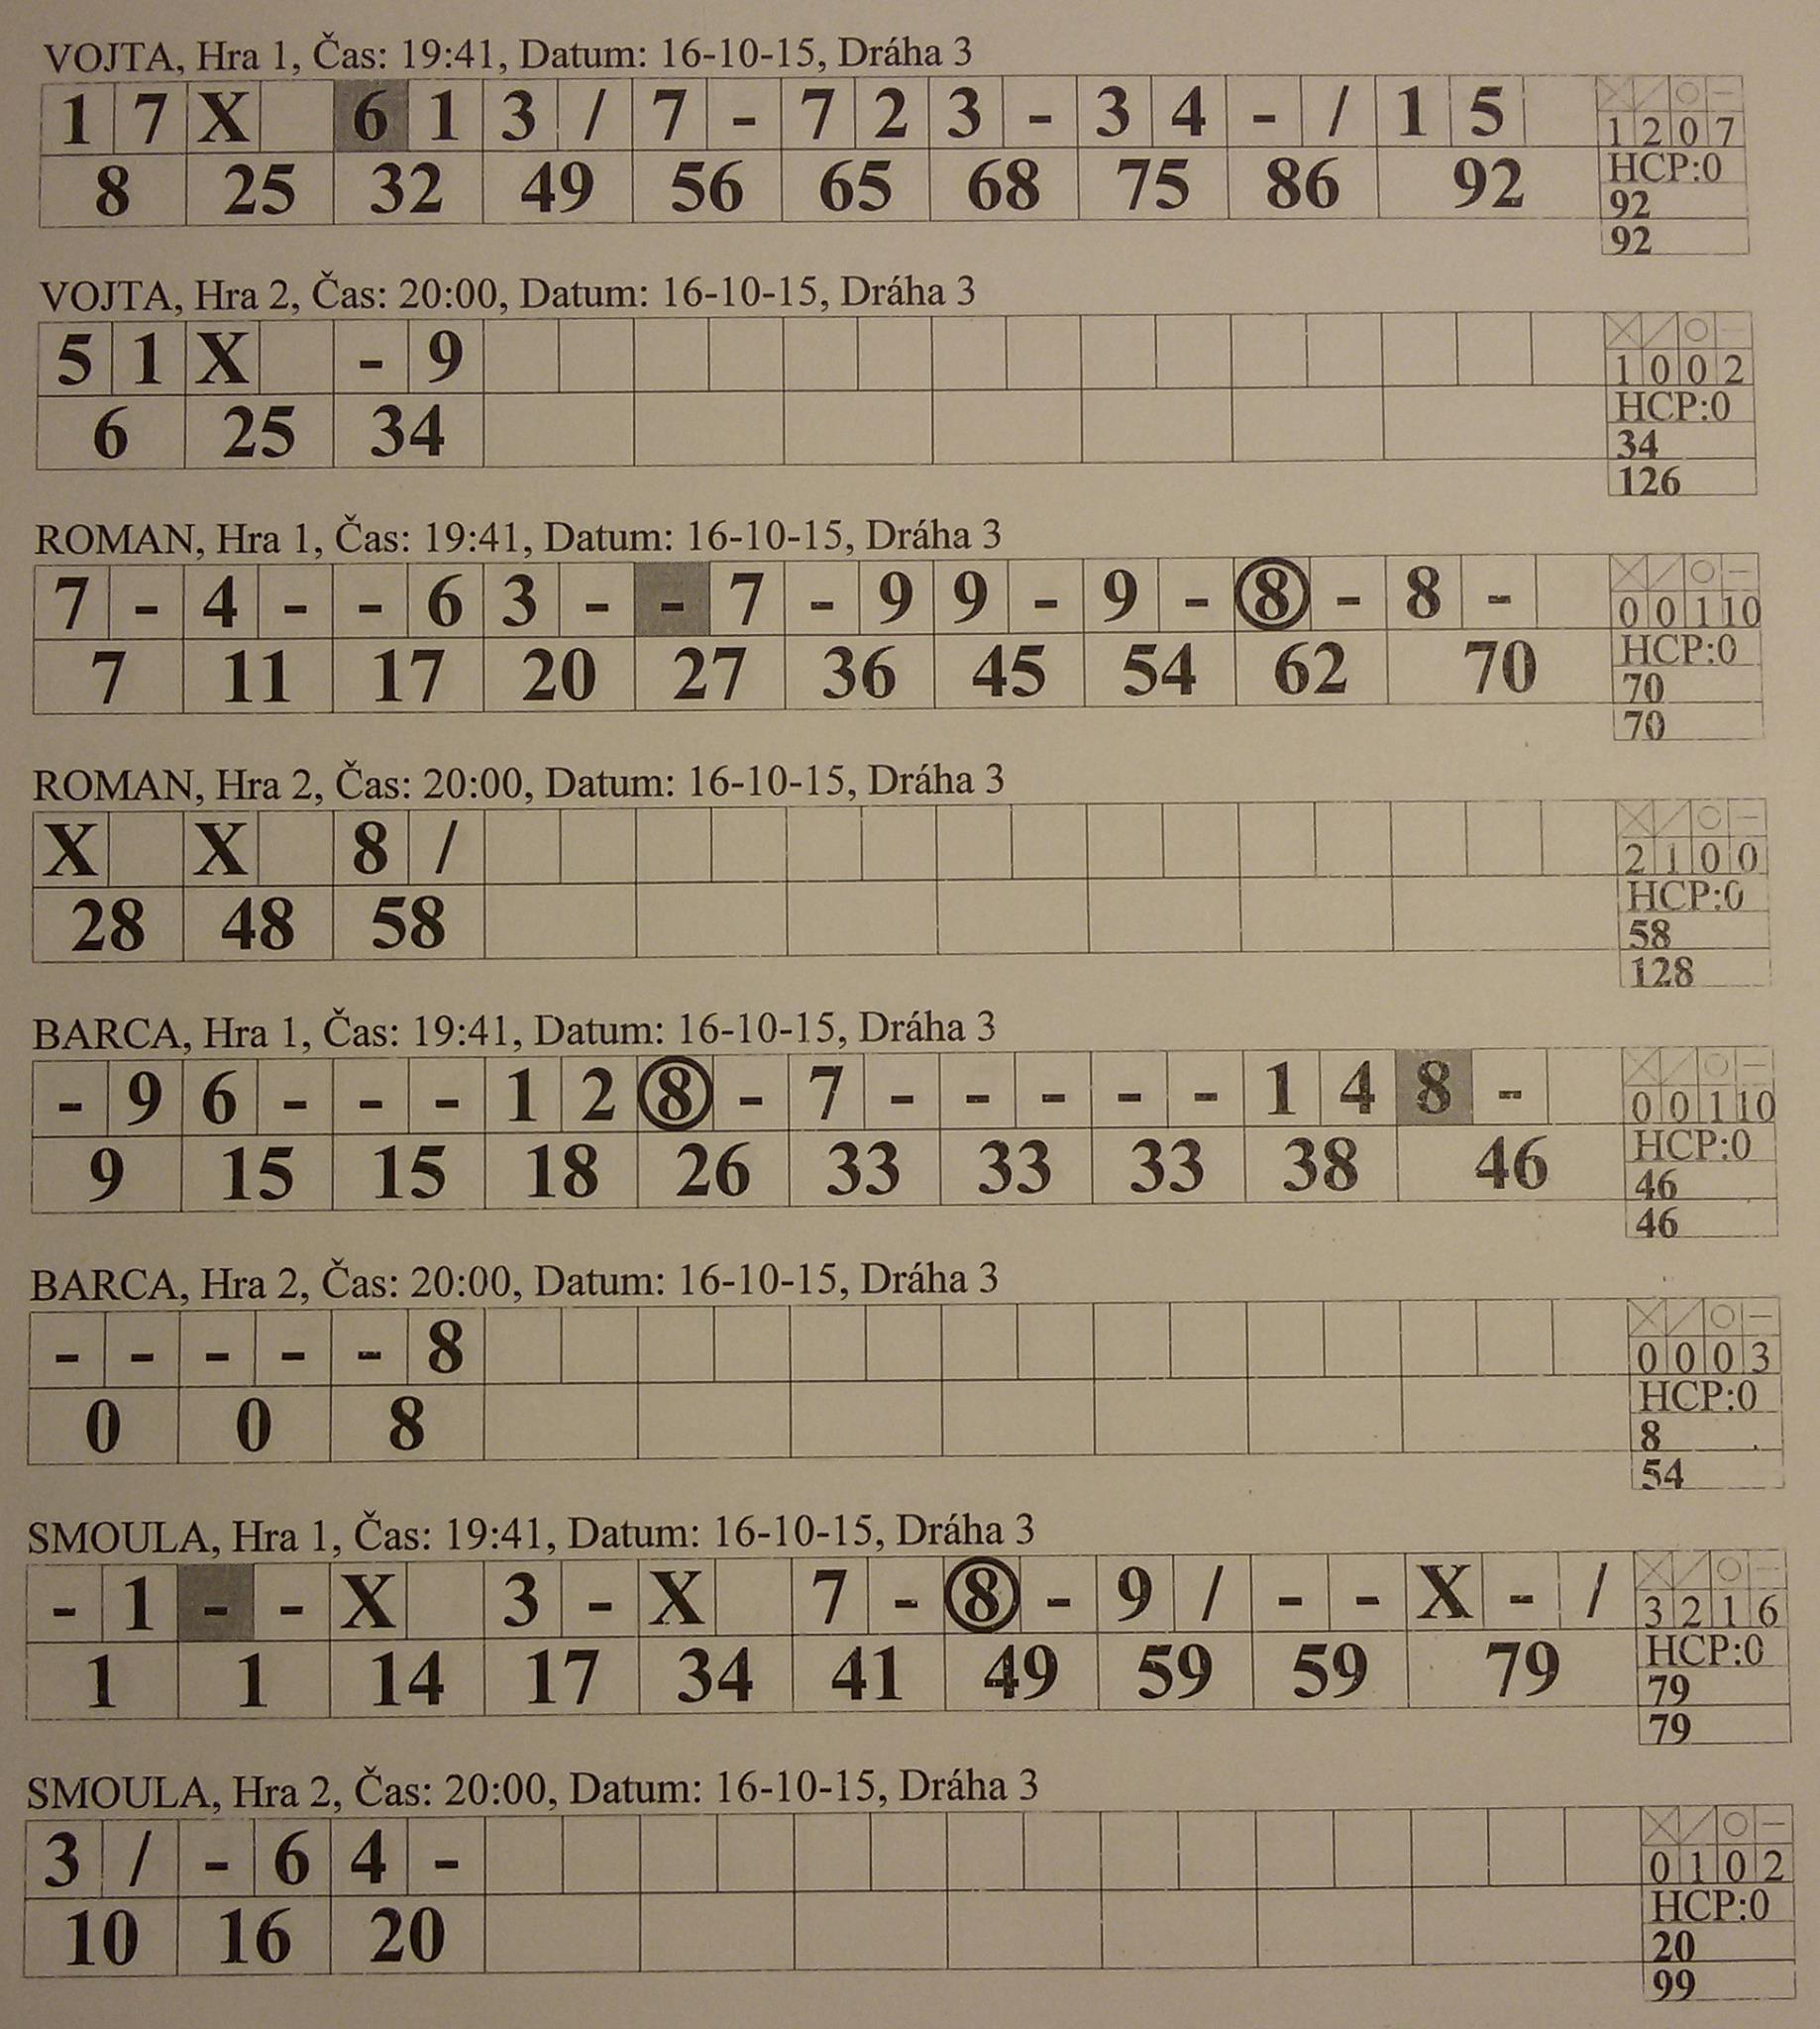 VOJTA, Hra 1, Čas: 19:41, Datum: 16-10-15, Dráha 3
1 7 X 6 1 3 / 7 - 7 2 3 - 3 4 - / 1 5
1 2 0 7
8 25 32 49 56 65 68 75 86 92
HCP:0
92
92
VOJTA, Hra 2, Čas: 20:00, Datum: 16-10-15, Dráha 3
5 1 X - 9
1 0 0 2
6 25 34
HCP:0
34
126
ROMAN, Hra 1, Čas: 19:41, Datum: 16-10-15, Dráha 3
7 - 4 - - 6 3 - - 7 - 9 9 - 9 - 8 - 8 -
0 0 1 10
7 11 17 20 27 36 45 54 62 70
HCP:0
70
70
ROMAN, Hra 2, Čas: 20:00, Datum: 16-10-15, Dráha 3
X X 8 /
2 1 0 0
28 48 58
HCP:0
58
128
BARCA, Hra 1, Čas: 19:41, Datum: 16-10-15, Dráha 3
- 9 6 - - - 1 2 8 - 7 - - - - - 1 4 8 -
0 0 1 10
9 15 15 18 26 33 33 33 38 46
HCP:0
46
46
BARCA, Hra 2, Čas: 20:00, Datum: 16-10-15, Dráha 3
- - - - - 8
0 0 0 3
0 0 8
HCP:0
8
54
SMOULA, Hra 1, Čas: 19:41, Datum: 16-10-15, Dráha 3
- 1 - - X 3 - X 7 - 8 - 9 / - - X - /
3 2 1 6
1 1 14 17 34 41 49 59 59 79
HCP:0
79
79
SMOULA, Hra 2, Čas: 20:00, Datum: 16-10-15, Dráha 3
3 / - 6 4 -
0 1 0 2
10 16 20
HCP:0
20
99